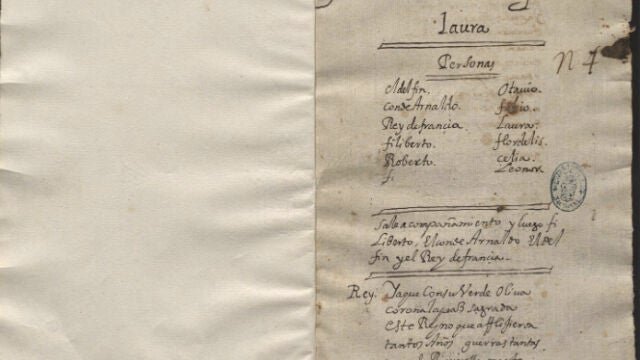 Laura
Personas
N 4
el delfin. Otavio.
conde Arnaldo. fabio.
Rey de francia. Laura.
filiberto. flordelis.
Roberto. celia.
f. Leonor.
Sale acompañamiento y luego fi
Liberto, el conde Arnaldo el del
fin y el Rey de francia.
Rey. Ya que Con su Verde Oliva
corona la paz sagrada
este Reyno que afligieron
tantos Años guerras tantas